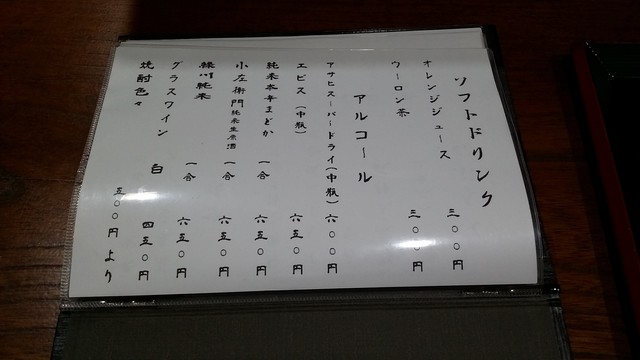 ソフトドリンク
オレンジジュース 三〇〇円
ウーロン茶 三〇〇円
アルコール
アサヒスーパードライ(中瓶) 六〇〇円
エビス(中瓶) 六五〇円
純米本辛まどか 一合 六五〇円
小左衛門純米生原酒 一合 六五〇円
緑川純米 一合 六五〇円
グラスワイン 白 四五〇円
焼酎色々 五〇〇円より